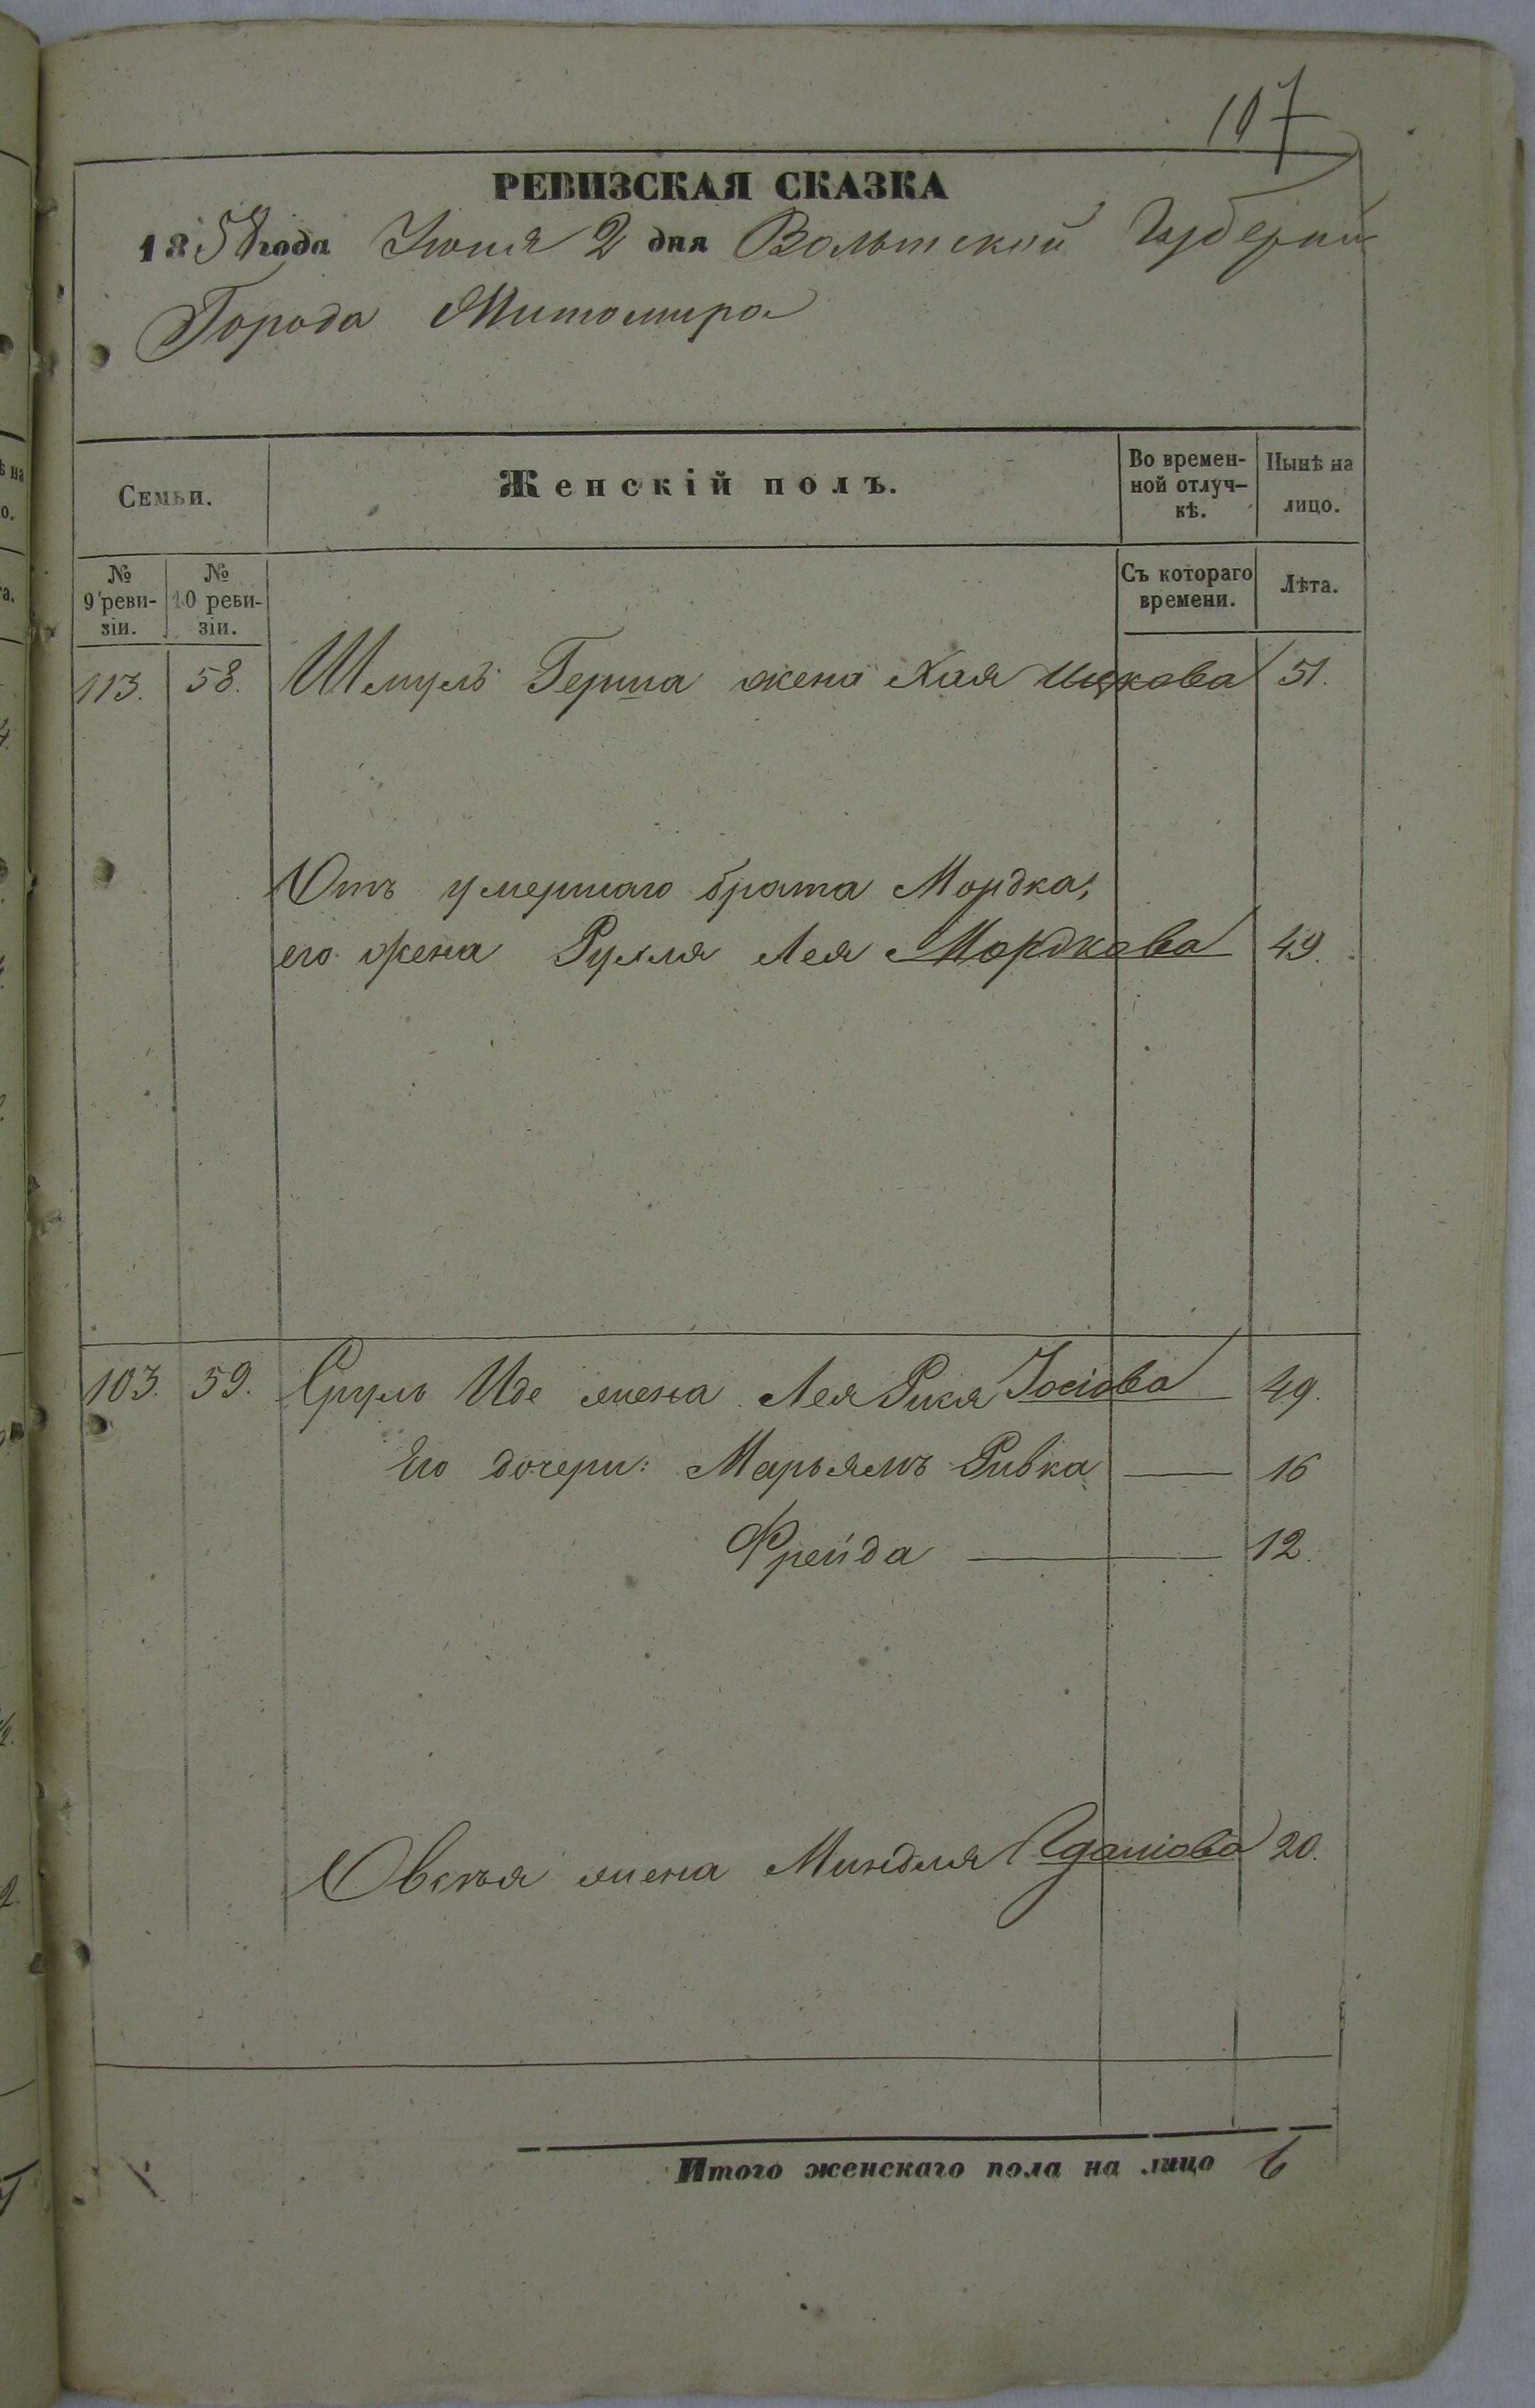 107
РЕВИЗСКАЯ СКАЗКА
1858 года Июня 2 дня Волынской Губерніи
Города Житомира
Семьи. Женскій полъ. Во времен- Нынѣ на
ной отлуч- лицо.
кѣ.
№ № Съ котораго Лѣта.
9 реви- 10 реви- времени.
зіи. зіи.
113. 58. Шмуль Герша жена Хая Ицкова 51.
Отъ умершаго брата Мордка,
его жена Рухля Лея Мордкова 49.
103. 59. Сруль Иде жена Лея Рися Іосiова 49.
Его дочери: Марьямъ Ривка — 16
Фрейда — 12.
жена Миндля 20.
Итого женскаго пола на лицо 6